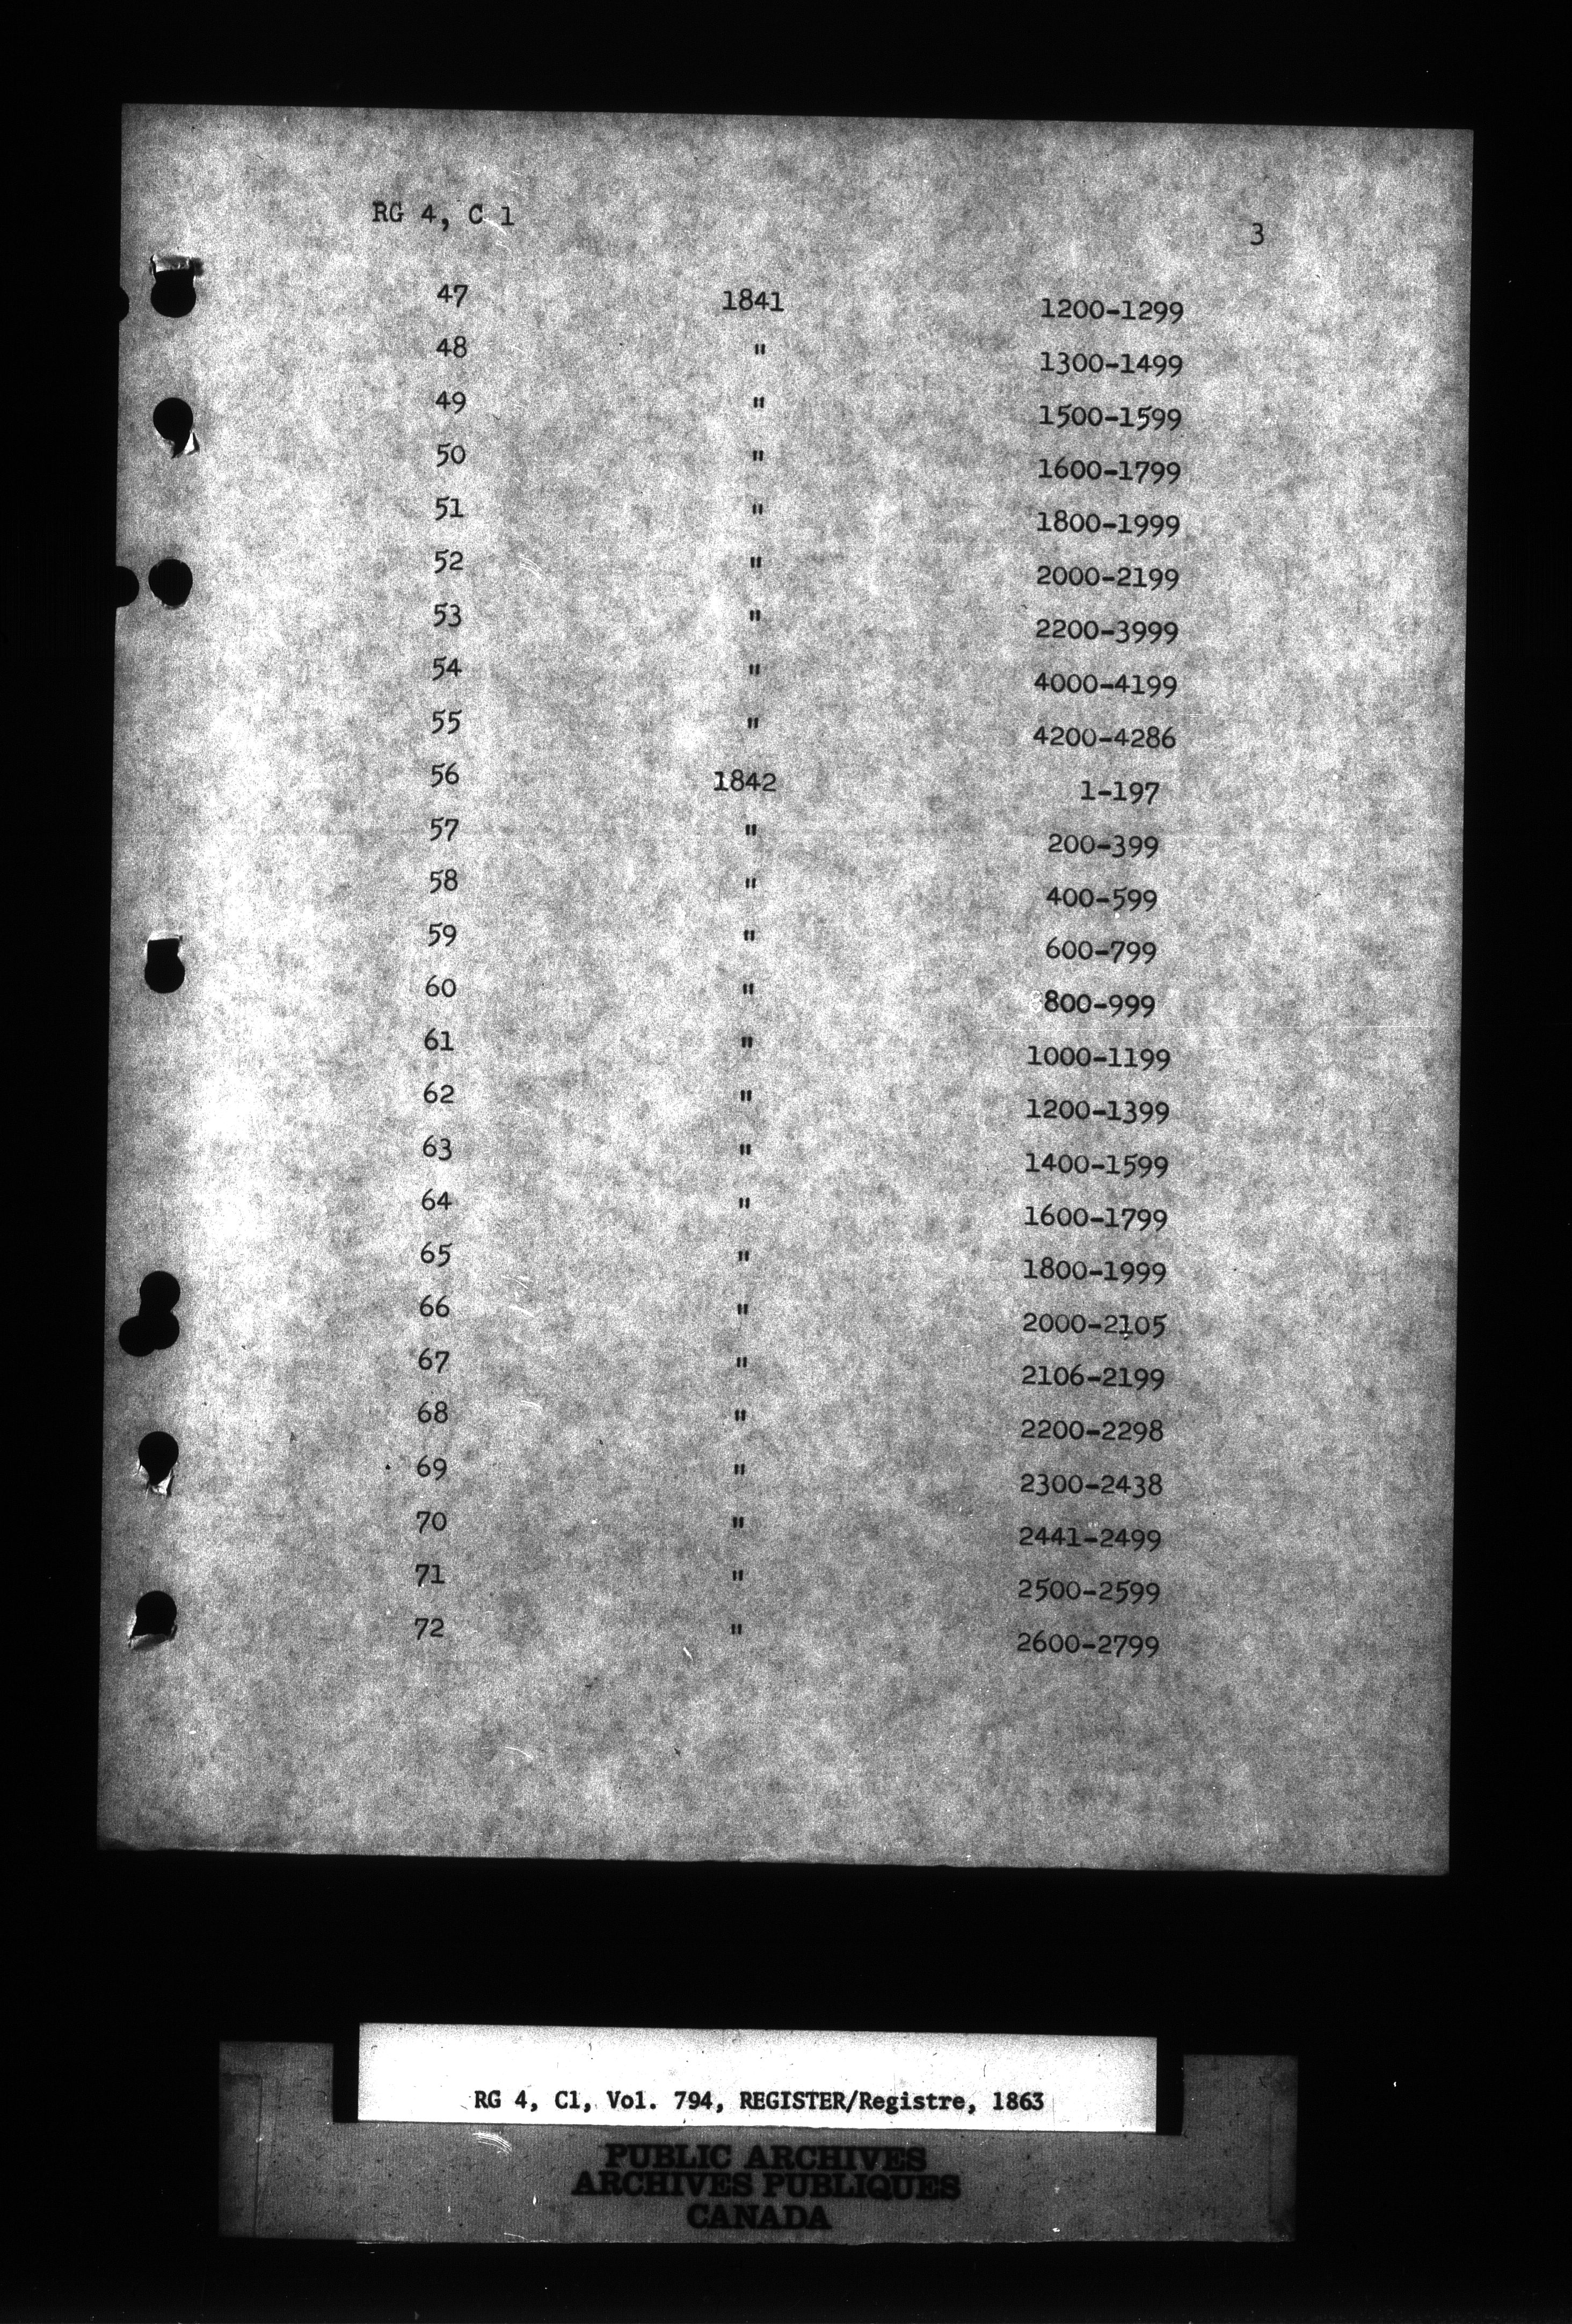 RG 4, C 1
3
47 1841 1200-1299
48 " 1300-1499
49 " 1500-1599
50 " 1600-1799
51 " 1800-1999
52 " 2000-2199
53 " 2200-3999
54 " 4000-4199
55 " 4200-4286
56 1842 1-197
57 " 200-399
58 " 400-599
59 " 600-799
60 " 800-999
61 " 1000-1199
62 " 1200-1399
63 " 1400-1599
64 " 1600-1799
65 " 1800-1999
66 " 2000-2105
67 " 2106-2199
68 " 2200-2298
69 " 2300-2438
70 " 2441-2499
71 " 2500-2599
72 " 2600-2799
RG 4, C1, Vol. 794, REGISTER/Registre, 1863
PUBLIC ARCHIVES
ARCHIVES PUBLIQUES
CANADA